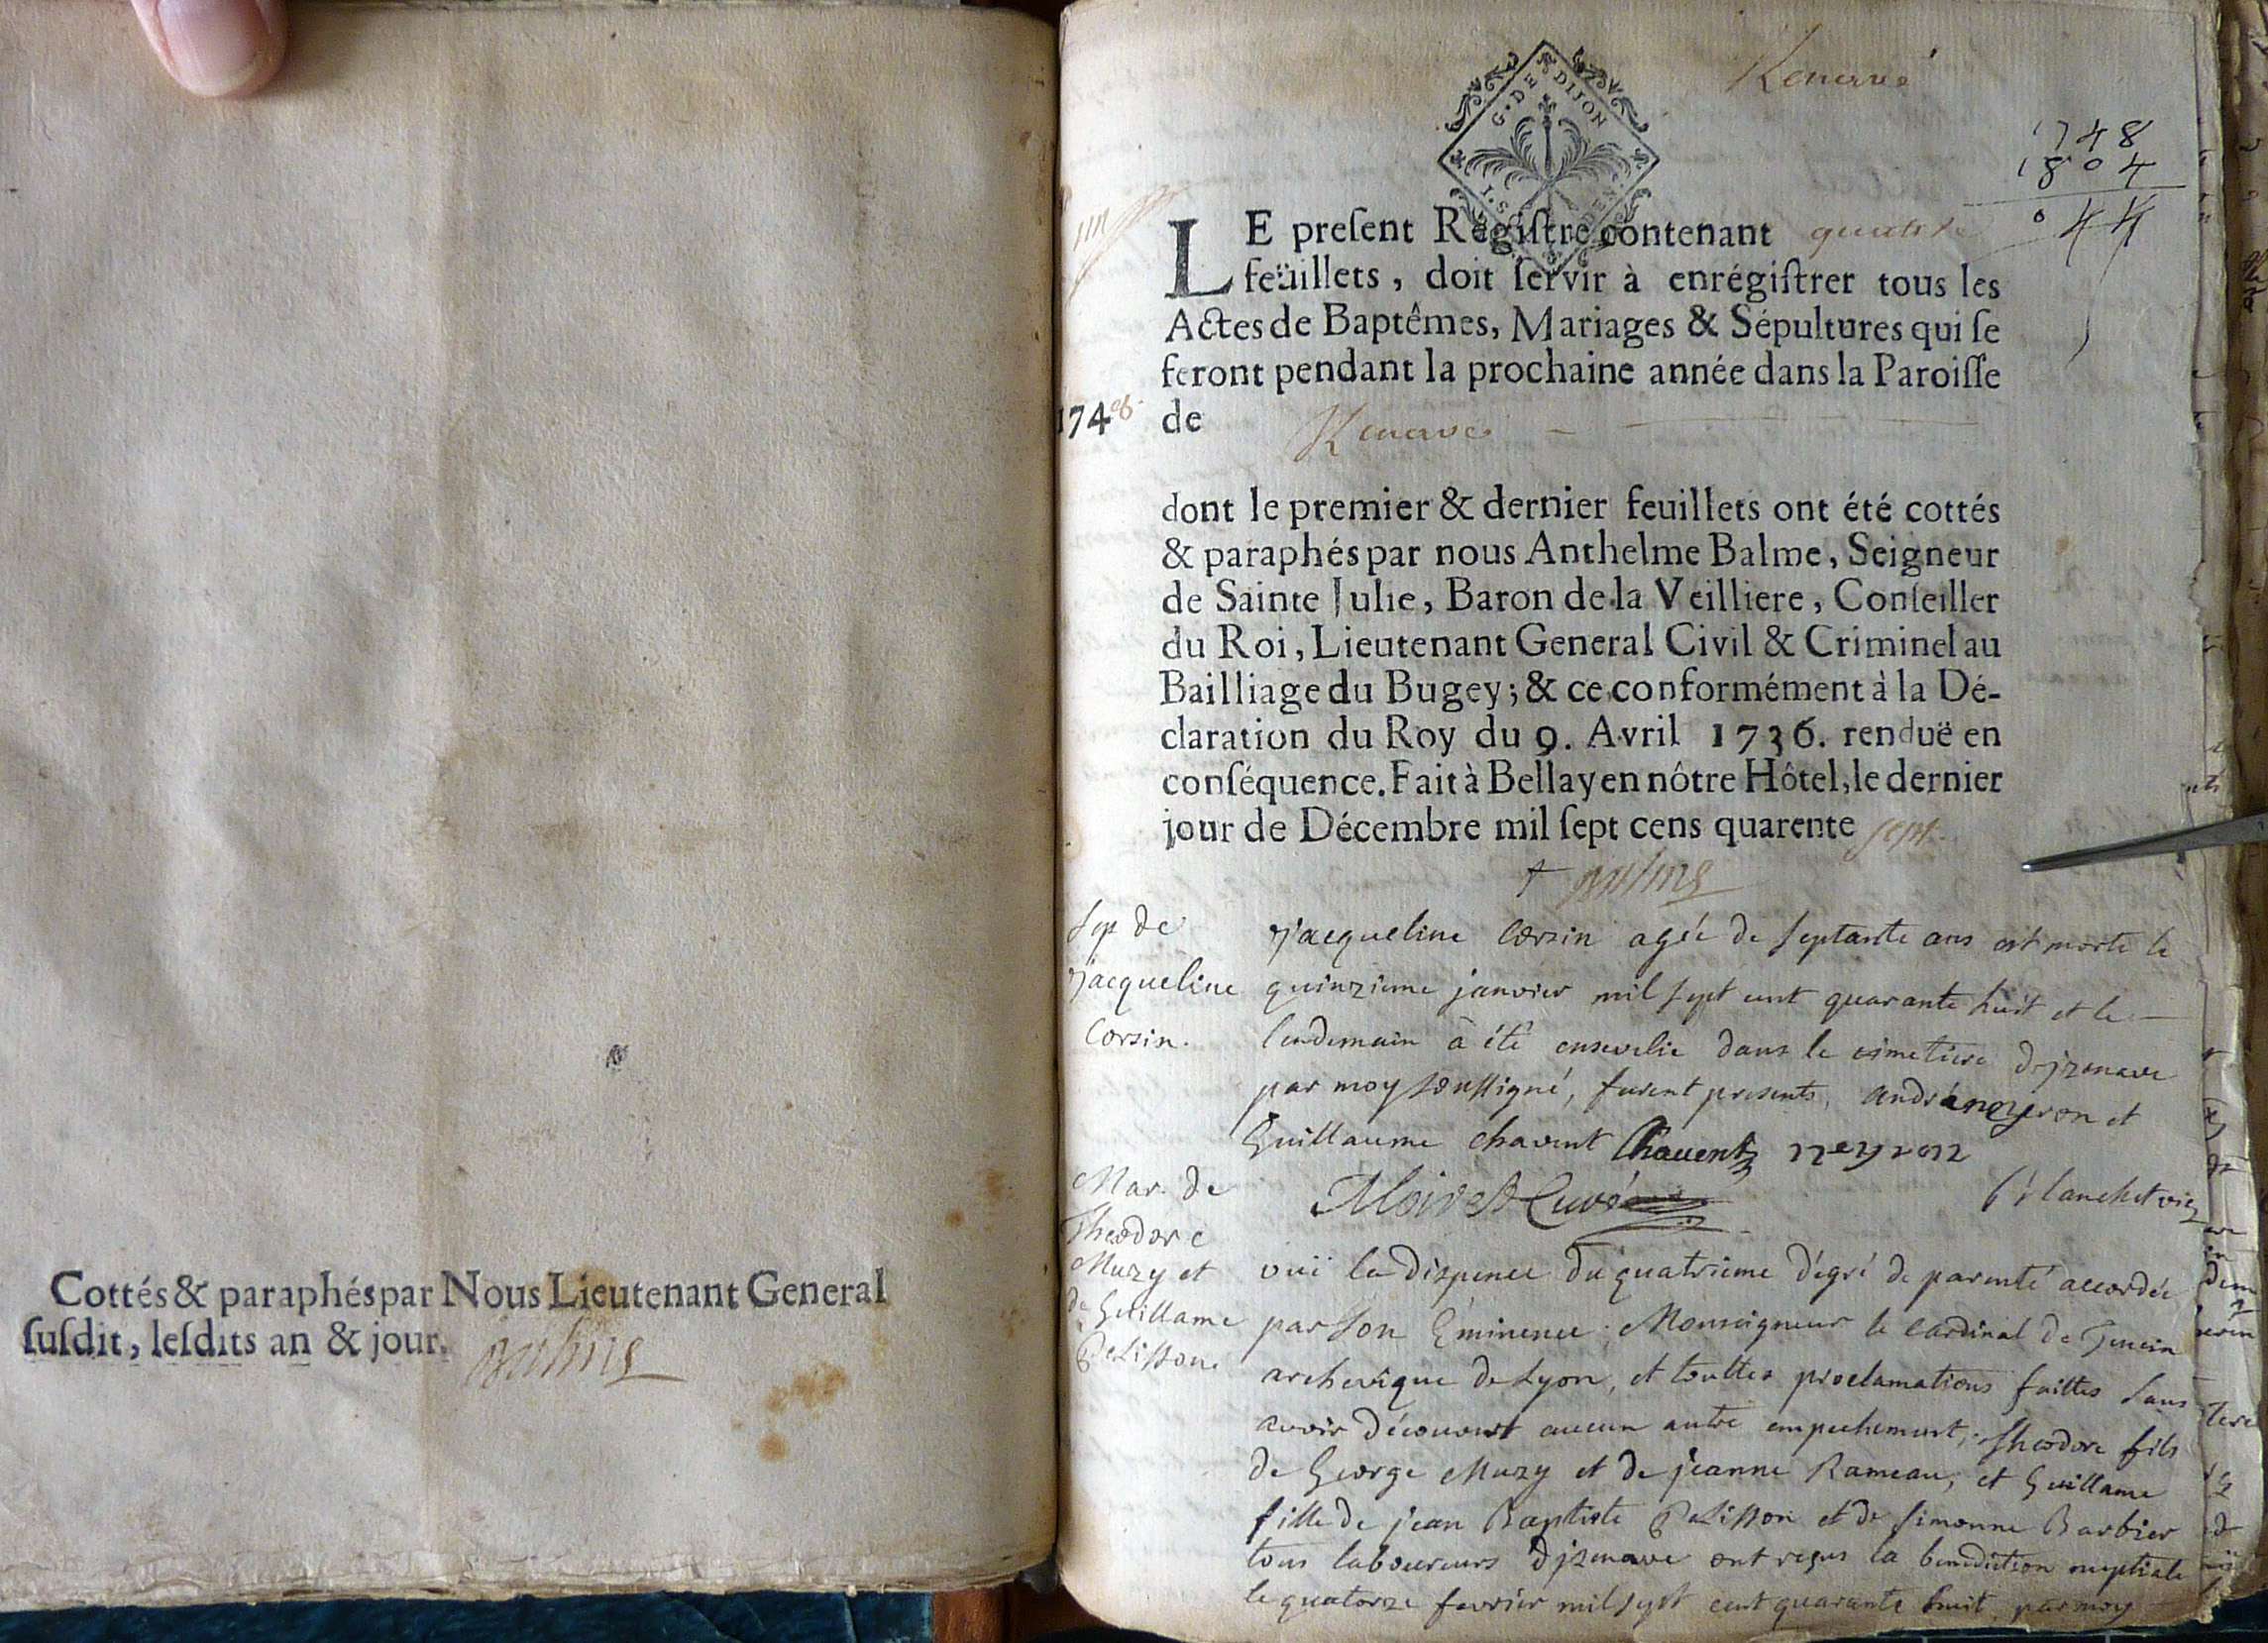 Cottés & paraphés par Nous Lieutenant General
ſuſdit, leſdits an & jour.
balme
G. DE DIJON
1748
1804
044
LE preſent Regiſtre contenant quatre
feüillets, doit ſervir à enrégiſtrer tous les
Actes de Baptêmes, Mariages & Sépultures qui ſe
feront pendant la prochaine année dans la Paroiſſe
1748 de
dont le premier & dernier feuillets ont été cottés
& paraphés par nous Anthelme Balme, Seigneur
de Sainte Julie, Baron de la Veilliere, Conſeiller
du Roi, Lieutenant General Civil & Criminel au
Bailliage du Bugey; & ce conformément à la Dé-
claration du Roy du 9. Avril 1736. renduë en
conſéquence. Fait à Bellay en nôtre Hôtel, le dernier
jour de Décembre mil ſept cens quarente sept
balme
Sep de
jacqueline
Corsin.
jacqueline Corsin agée de septante ans est morte le
quinzieme janvier mil sept cent quarante huit et le
lendemain à été ensevelie dans le cimetiere d'jzenave
par moy soussigné, furent presents, andré neyron et
Guillaume chavent Chavent neyron
Curé
Blanchet
Mar. de
Theodore
Muzy et
de Guillame
Pelisson
vüe la dispence du quatrieme dégré de parenté accordée
par Son Eminence Monseigneur le Cardinal de Tencin
archevêque de Lyon, et touttes proclamations faittes sans
avoir découvert aucun autre empechement, Theodore fils
de George Muzy et de jeanne Rameau, et Guillame
fille de jean Baptiste Pelisson et de simonne Barbier
tous laboureurs d'jzenave ont reçus la benediction nuptiale
le quatorze fevrier mil sept cent quarante huit par moy